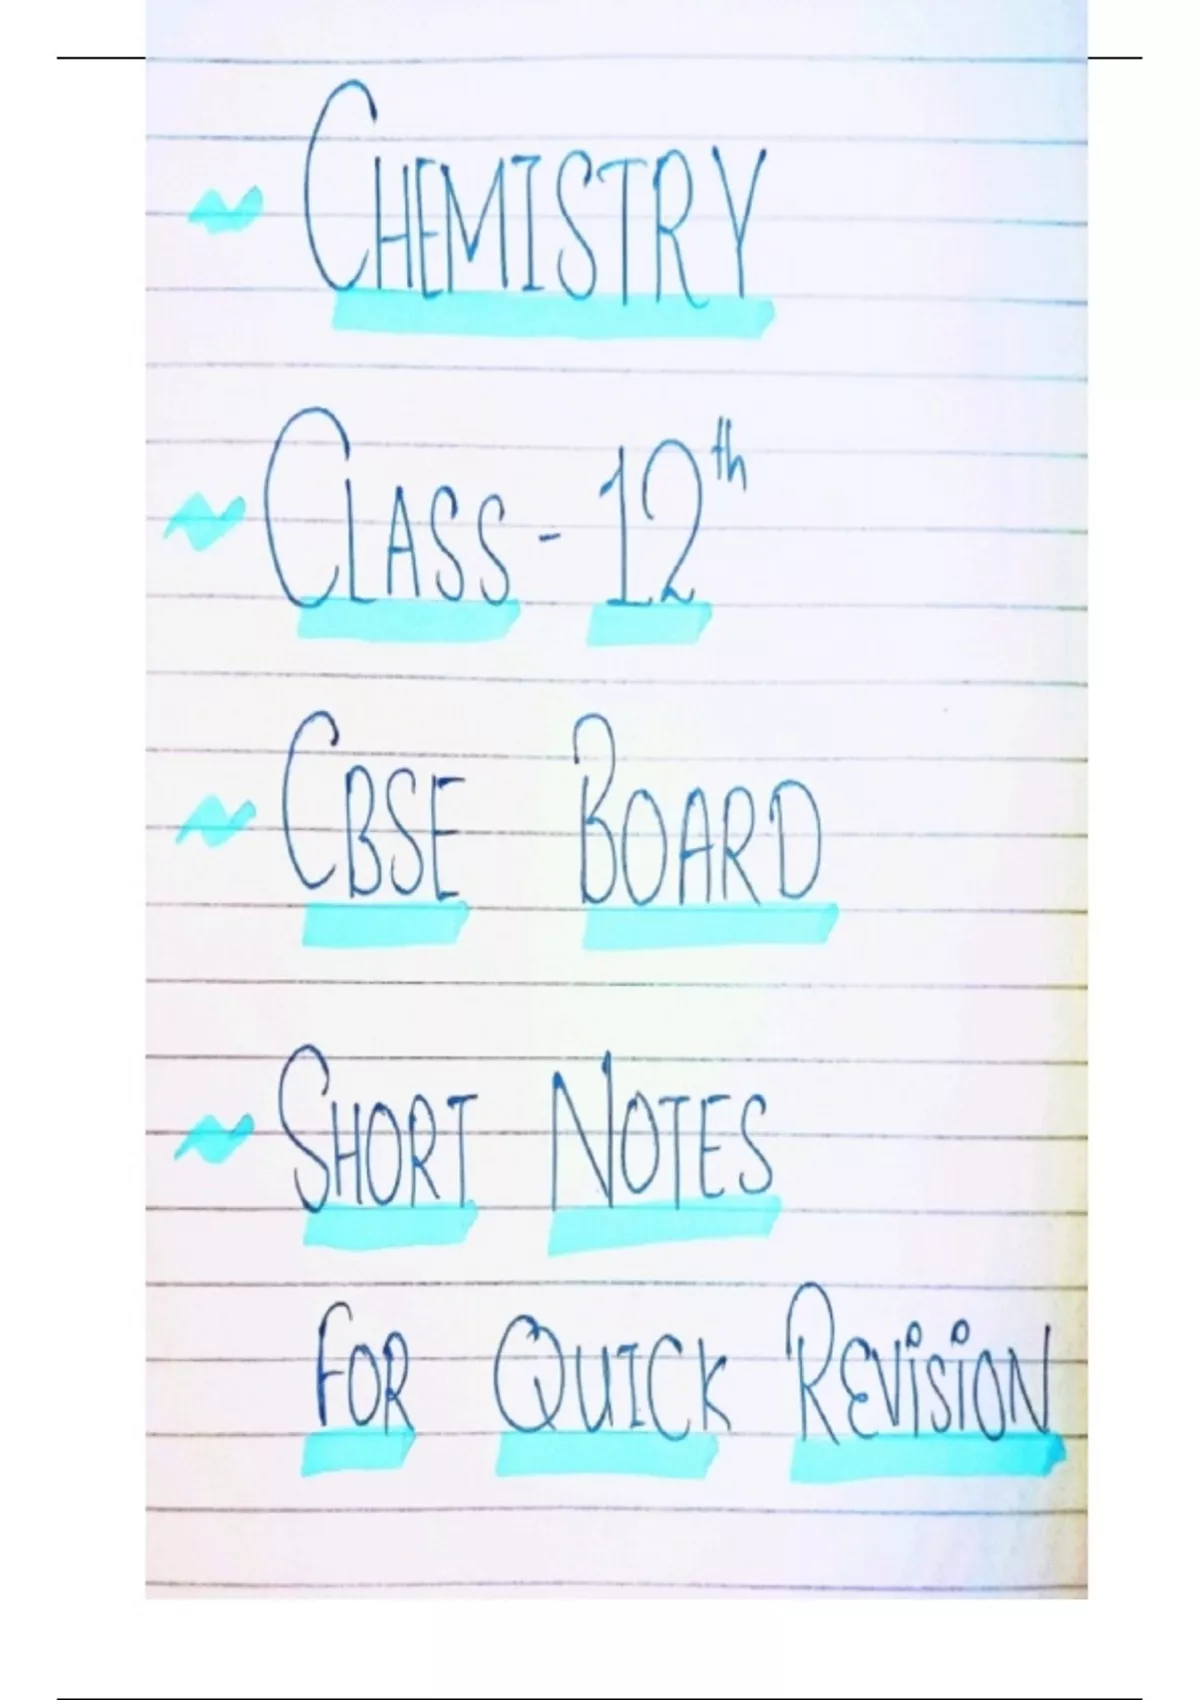 ~ CHEMISTRY
~ CLASS - 12th
~ CBSE BOARD
~ SHORT NOTES
FOR QUICK REVISION